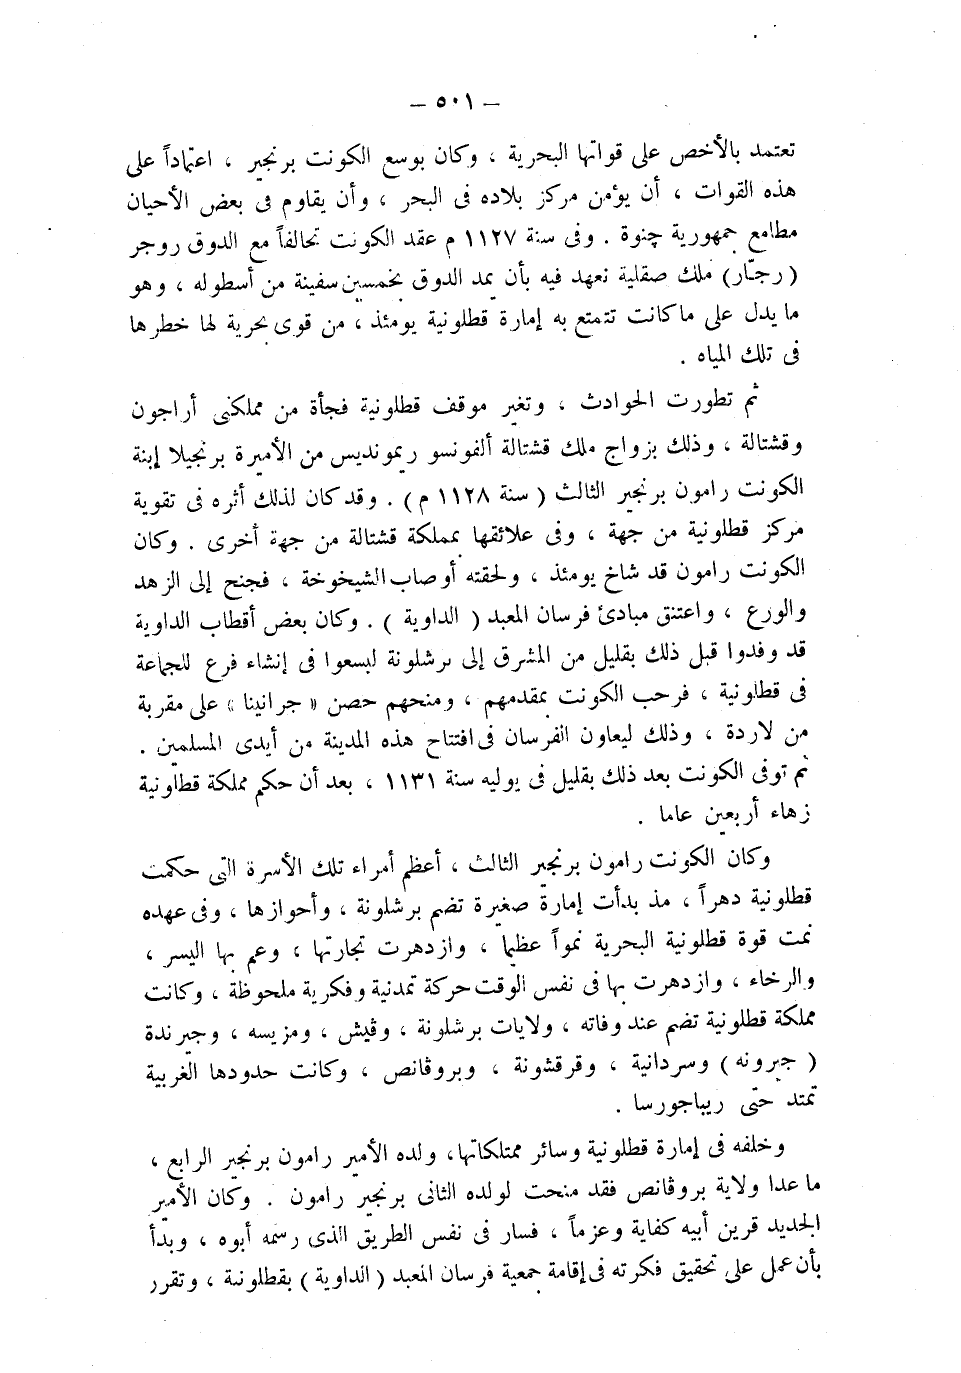 — ٥٠١ —
تعتمد بالأخص على قواتها البحرية ، وكان بوسع الكونت برنجير ، اعتماداً على
هذه القوات ، أن يؤمن مركز بلاده فى البحر ، وأن يقاوم فى بعض الأحيان
مطامع جمهورية چنوة . وفى سنة ١١٢٧ م عقد الكونت تحالفاً مع الدوق روجر
( رجار ) ملك صقلية تعهد فيه بأن يمد الدوق بخمسين سفينة من أسطوله ، وهو
ما يدل على ما كانت تتمتع به إمارة قطلونية يومئذ ، من قوى بحرية لها خطرها
فى تلك المياه .
ثم تطورت الحوادث ، وتغير موقف قطلونية فجأة من مملكتى أراجون
وقشتالة ، وذلك بزواج ملك قشتالة ألفونسو ريمونديس من الأميرة برنجيلا إبنة
الكونت رامون برنجير الثالث ( سنة ١١٢٨ م ) . وقد كان لذلك أثره فى تقوية
مركز قطلونية من جهة ، وفى علائقها بمملكة قشتالة من جهة أخرى . وكان
الكونت رامون قد شاخ يومئذ ، ولحقته أوصاب الشيخوخة ، فجنح إلى الزهد
والورع ، واعتنق مبادئ فرسان المعبد ( الداوية ) . وكان بعض أقطاب الداوية
قد وفدوا قبل ذلك بقليل من المشرق إلى برشلونة ليسعوا فى إنشاء فرع للجماعة
فى قطلونية ، فرحب الكونت بمقدمهم ، ومنحهم حصن « جرانينا » على مقربة
من لاردة ، وذلك ليعاون الفرسان فى افتتاح هذه المدينة من أيدى المسلمين .
ثم توفى الكونت بعد ذلك بقليل فى يوليه سنة ١١٣١ ، بعد أن حكم مملكة قطلونية
زهاء أربعين عاما .
وكان الكونت رامون برنجير الثالث ، أعظم أمراء تلك الأسرة التى حكمت
قطلونية دهراً ، مذ بدأت إمارة صغيرة تضم برشلونة ، وأحوازها ، وفى عهده
نمت قوة قطلونية البحرية نمواً عظيما ، وازدهرت تجارتها ، وعم بها اليسر ،
والرخاء ، وازدهرت بها فى نفس الوقت حركة تمدنية وفكرية ملحوظة ، وكانت
مملكة قطلونية تضم عند وفاته ، ولايات برشلونة ، وڤيش ، ومزيسه ، وجيرندة
( جيرونه ) وسردانية ، وقرقشونة ، وبروڤانص ، وكانت حدودها الغربية
تمتد حتى ريباجورسا .
وخلفه فى إمارة قطلونية وسائر ممتلكاتها ، ولده الأمير رامون برنجير الرابع ،
ما عدا ولاية بروڤانص فقد منحت لولده الثانى برنجير رامون . وكان الأمير
الجديد قرين أبيه كفاية وعزماً ، فسار فى نفس الطريق الذى رسمه أبوه ، وبدأ
بأن عمل على تحقيق فكرته فى إقامة جمعية فرسان المعبد ( الداوية ) بقطلونية ، وتقرر